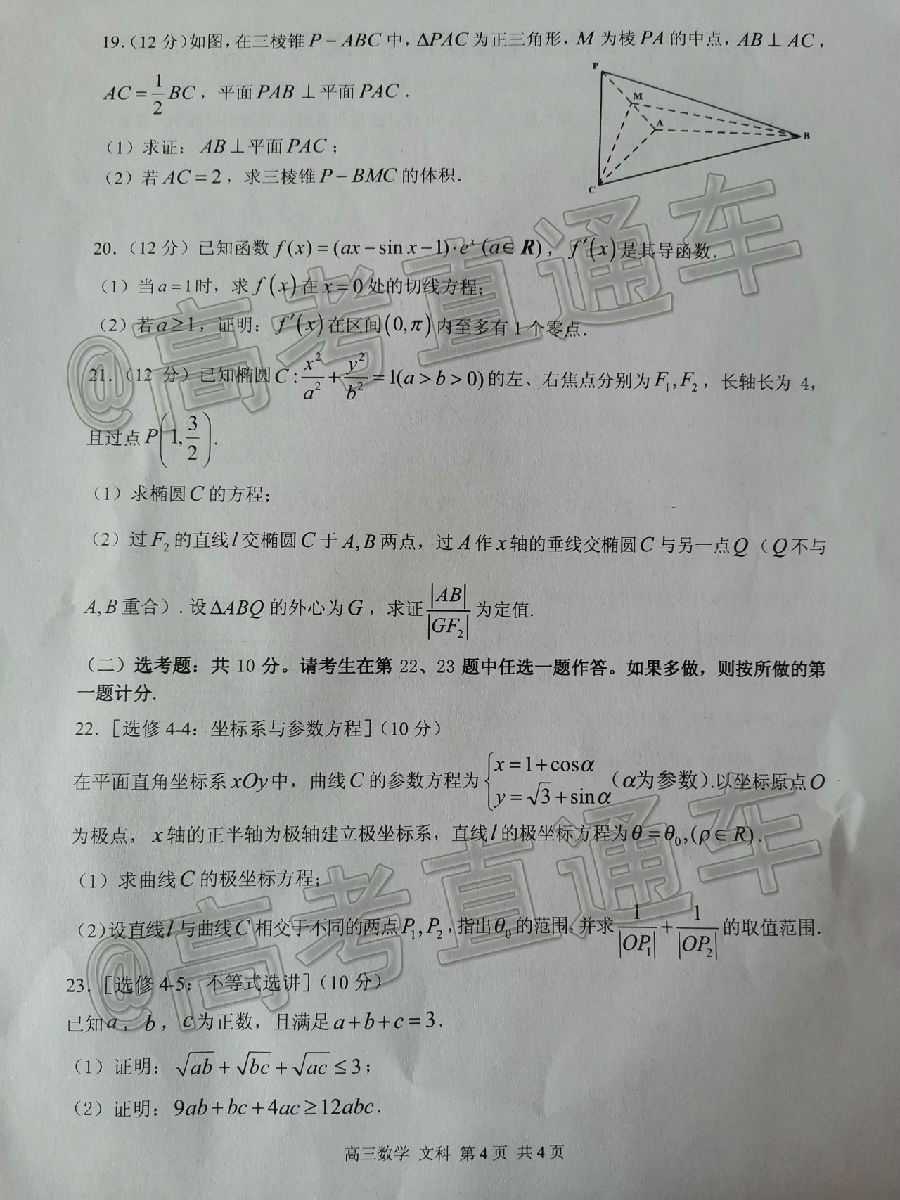 19.(12分)如图,在三棱锥P－ABC中,ΔPAC为正三角形,M为棱PA的中点,AB⊥AC,
AC=1/2BC,平面PAB⊥平面PAC.
P
M
A
B
C
(1)求证:AB⊥平面PAC;
(2)若AC=2,求三棱锥P－BMC的体积.
20.(12分)已知函数f(x)=(ax－sin x－1)·e^x(a∈R),f′(x)是其导函数.
(1)当a=1时,求f(x)在x=0处的切线方程;
(2)若a≥1,证明:f′(x)在区间(0,π)内至多有1个零点.
21.(12分)已知椭圆C:x²/a²+y²/b²=1(a>b>0)的左、右焦点分别为F₁,F₂,长轴长为4,
且过点P(1,3/2).
(1)求椭圆C的方程;
(2)过F₂的直线l交椭圆C于A,B两点,过A作x轴的垂线交椭圆C与另一点Q(Q不与
A,B重合).设ΔABQ的外心为G,求证|AB|/|GF₂|为定值.
(二)选考题:共10分。请考生在第22、23题中任选一题作答。如果多做,则按所做的第
一题计分.
22.[选修4-4:坐标系与参数方程](10分)
在平面直角坐标系xOy中,曲线C的参数方程为{x=1+cosα y=√3+sinα (α为参数).以坐标原点O
为极点,x轴的正半轴为极轴建立极坐标系,直线l的极坐标方程为θ=θ₀,(ρ∈R).
(1)求曲线C的极坐标方程;
(2)设直线l与曲线C相交于不同的两点P₁,P₂,指出θ₀的范围,并求1/|OP₁|+1/|OP₂|的取值范围.
23.[选修4-5:不等式选讲](10分)
已知a,b,c为正数,且满足a+b+c=3.
(1)证明:√ab+√bc+√ac≤3;
(2)证明:9ab+bc+4ac≥12abc.
高三数学 文科 第4页 共4页
@高考直通车
@高考直通车